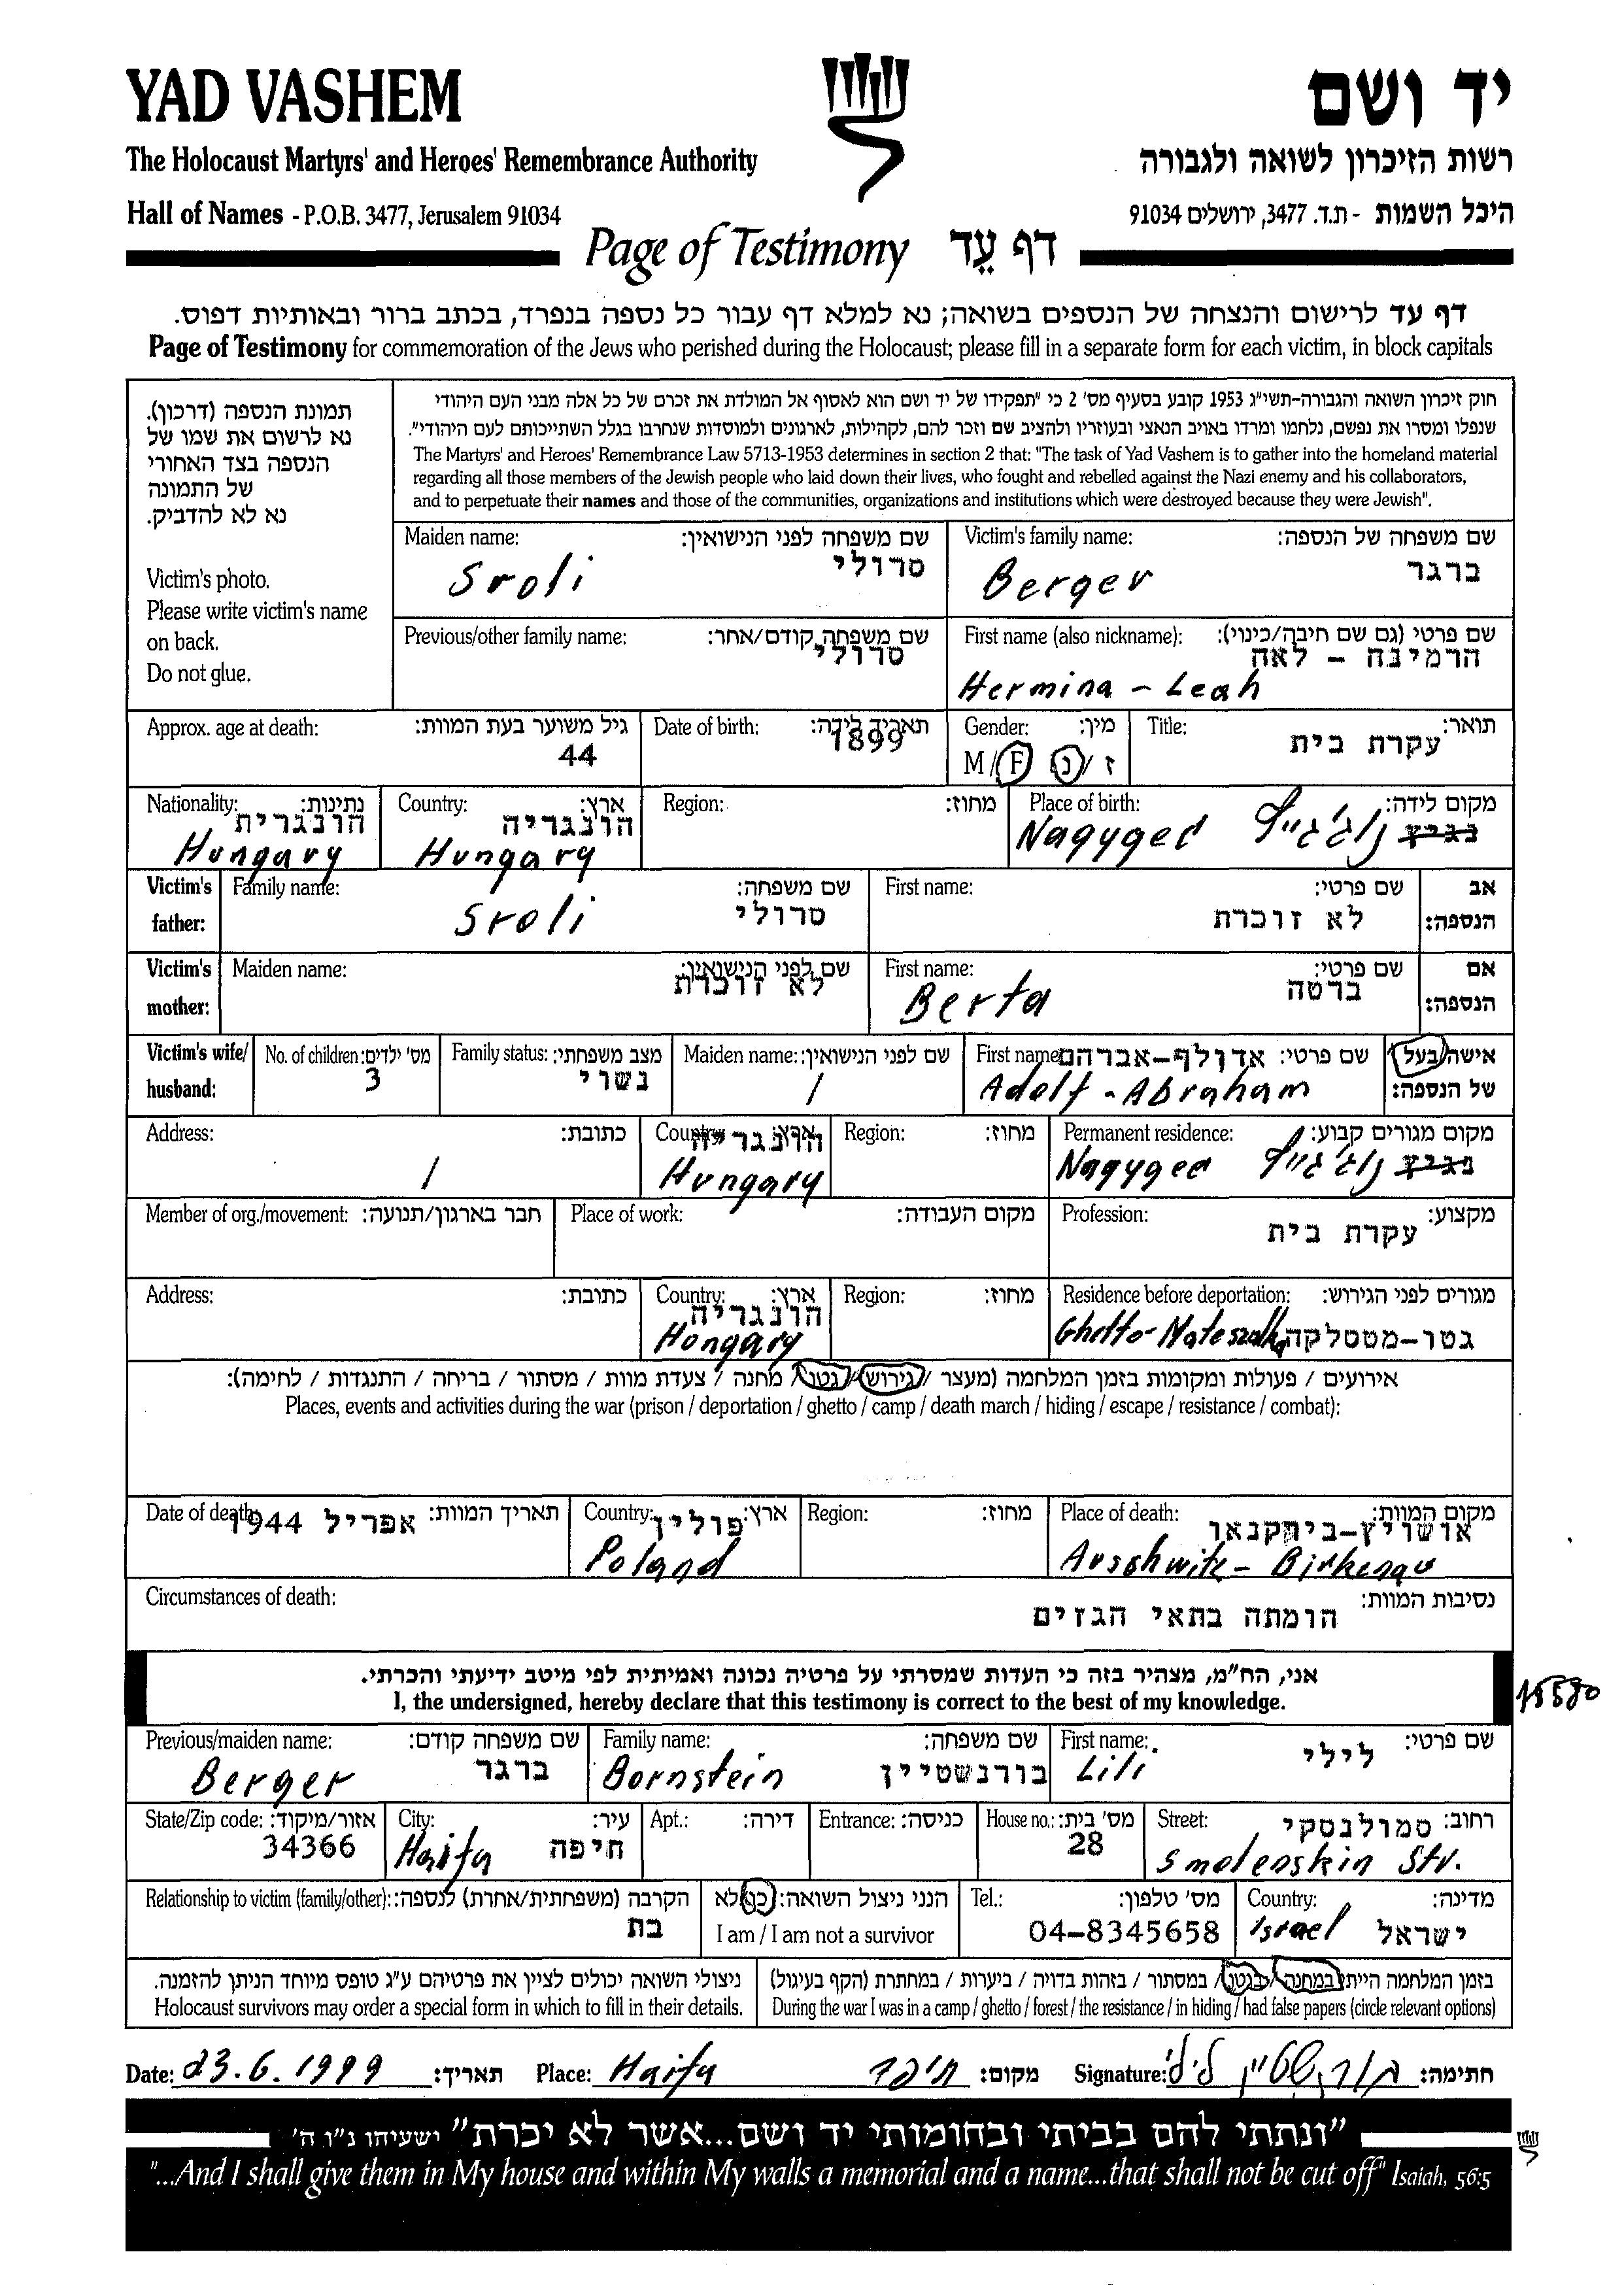 YAD VASHEM
יד ושם
The Holocaust Martyrs' and Heroes' Remembrance Authority
רשות הזיכרון לשואה ולגבורה
Hall of Names - P.O.B. 3477, Jerusalem 91034
היכל השמות - ת.ד. 3477, ירושלים 91034
Page of Testimony דף עֵד
דף עד לרישום והנצחה של הנספים בשואה; נא למלא דף עבור כל נספה בנפרד, בכתב ברור ובאותיות דפוס.
Page of Testimony for commemoration of the Jews who perished during the Holocaust; please fill in a separate form for each victim, in block capitals
תמונת הנספה (דרכון).
נא לרשום את שמו של
הנספה בצד האחורי
של התמונה
נא לא להדביק.
Victim's photo.
Please write victim's name
on back.
Do not glue.
חוק זיכרון השואה והגבורה-תשי"ג 1953 קובע בסעיף מס' 2 כי "תפקידו של יד ושם הוא לאסוף אל המולדת את זכרם של כל אלה מבני העם היהודי
שנפלו ומסרו את נפשם, נלחמו ומרדו באויב הנאצי ובעוזריו ולהציב שם וזכר להם, לקהילות, לארגונים ולמוסדות שנחרבו בגלל השתייכותם לעם היהודי".
The Martyrs' and Heroes' Remembrance Law 5713-1953 determines in section 2 that: "The task of Yad Vashem is to gather into the homeland material
regarding all those members of the Jewish people who laid down their lives, who fought and rebelled against the Nazi enemy and his collaborators,
and to perpetuate their names and those of the communities, organizations and institutions which were destroyed because they were Jewish".
Maiden name: שם משפחה לפני הנישואין:
סרולי
Sroli
Victim's family name: שם משפחה של הנספה:
ברגר
Berger
Previous/other family name: שם משפחה קודם/אחר:
סרולי
First name (also nickname): שם פרטי (גם שם חיבה/כינוי):
הרמינה - לאה
Hermina - Leah
Approx. age at death: גיל משוער בעת המוות:
44
Date of birth: תאריך לידה:
1899
Gender: מין:
M / F ז / נ
Title: תואר:
עקרת בית
Nationality: נתינות:
הונגרית
Hungary
Country: ארץ:
הונגריה
Hungary
Region: מחוז:
Place of birth: מקום לידה:
Nagyged
Victim's father:
Family name: שם משפחה:
סרולי
Sroli
First name: שם פרטי:
לא זוכרת
אב הנספה:
Victim's mother:
Maiden name: שם לפני הנישואין:
לא זוכרת
First name: שם פרטי:
ברטה
Berta
אם הנספה:
Victim's wife/ husband:
No. of children: מס' ילדים:
3
Family status: מצב משפחתי:
נשוי
Maiden name: שם לפני הנישואין:
/
First name: שם פרטי: אדולף-אברהם
Adolf - Abraham
אישה/בעל של הנספה:
Address: כתובת:
/
Country: ארץ:
הונגריה
Hungary
Region: מחוז:
Permanent residence: מקום מגורים קבוע:
Nagyged
Member of org./movement: חבר בארגון/תנועה:
Place of work: מקום העבודה:
Profession: מקצוע:
עקרת בית
Address: כתובת:
Country: ארץ:
הונגריה
Hongary
Region: מחוז:
Residence before deportation: מגורים לפני הגירוש:
Ghetto-Mateszalka גטו-מטסלקה
אירועים / פעולות ומקומות בזמן המלחמה (מעצר / גירוש / גטו / מחנה / צעדת מוות / מסתור / בריחה / התנגדות / לחימה):
Places, events and activities during the war (prison / deportation / ghetto / camp / death march / hiding / escape / resistance / combat):
Date of death: תאריך המוות:
אפריל 1944
Country: ארץ:
פולין
Poland
Region: מחוז:
Place of death: מקום המוות:
אושויץ-בירקנאו
Auschwitz - Birkenau
Circumstances of death: נסיבות המוות:
הומתה בתאי הגזים
אני, הח"מ, מצהיר בזה כי העדות שמסרתי על פרטיה נכונה ואמיתית לפי מיטב ידיעתי והכרתי.
I, the undersigned, hereby declare that this testimony is correct to the best of my knowledge.
15580
Previous/maiden name: שם משפחה קודם:
ברגר
Berger
Family name: שם משפחה:
Bornstein בורנשטיין
First name: שם פרטי:
Lili לילי
State/Zip code: אזור/מיקוד:
34366
City: עיר:
Haifa חיפה
Apt.: דירה:
Entrance: כניסה:
House no.: מס' בית:
28
Street: רחוב:
סמולנסקי
Smolenskin Str.
Relationship to victim (family/other): הקרבה (משפחתית/אחרת) לנספה:
בת
הנני ניצול השואה: כן/לא
I am / I am not a survivor
Tel.: מס' טלפון:
04-8345658
Country: מדינה:
Israel ישראל
ניצולי השואה יכולים לציין את פרטיהם ע"ג טופס מיוחד הניתן להזמנה.
Holocaust survivors may order a special form in which to fill in their details.
בזמן המלחמה הייתי במחנה / בגטו / במסתור / בזהות בדויה / ביערות / במחתרת (הקף בעיגול)
During the war I was in a camp / ghetto / forest / the resistance / in hiding / had false papers (circle relevant options)
Date: 23.6.1999 תאריך: Place: Haifa חיפה מקום: Signature: בורנשטיין לילי חתימה:
"ונתתי להם בביתי ובחומותי יד ושם...אשר לא יכרת" ישעיהו נ"ו ה'
"...And I shall give them in My house and within My walls a memorial and a name...that shall not be cut off" Isaiah, 56:5